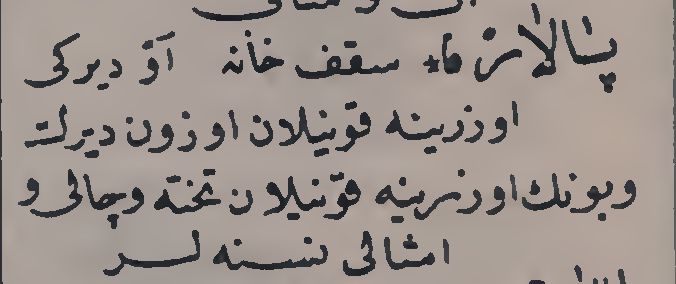 پالار فا٭ سقف خانه آو ديركى
اوزرينه قونيلان اوزون ديرك
وبونك اوزرينه قونيلان تخته وچالى و
امثالى نسنه لر